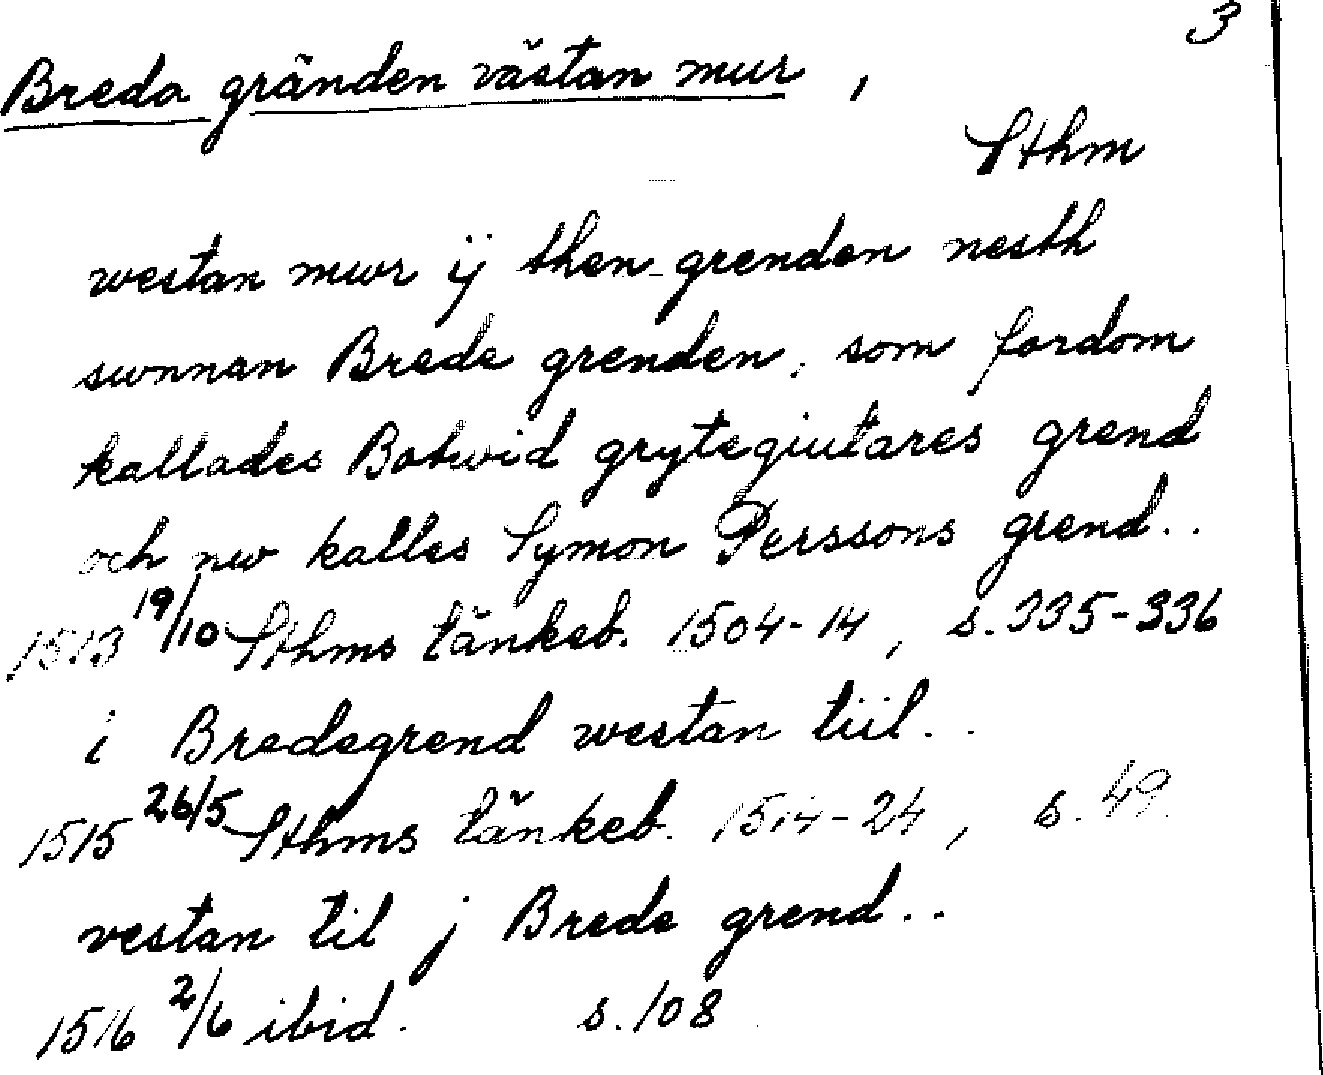 3
Breda gränden västan mur,
Sthm
westan mwr ij then grenden nesth
swnnan Brede grenden, som fordom
kallades Botwid grytegiutares grend
och nw kalles Symon Perssons grend..
1513 19/10 Sthms tänkeb. 1504-14, s. 335-336
i Bredegrend westan tiil..
1515 26/5 Sthms tänkeb. 1514-24, s. 49.
vestan til j Brede grend..
1516 2/6 ibid. s. 108